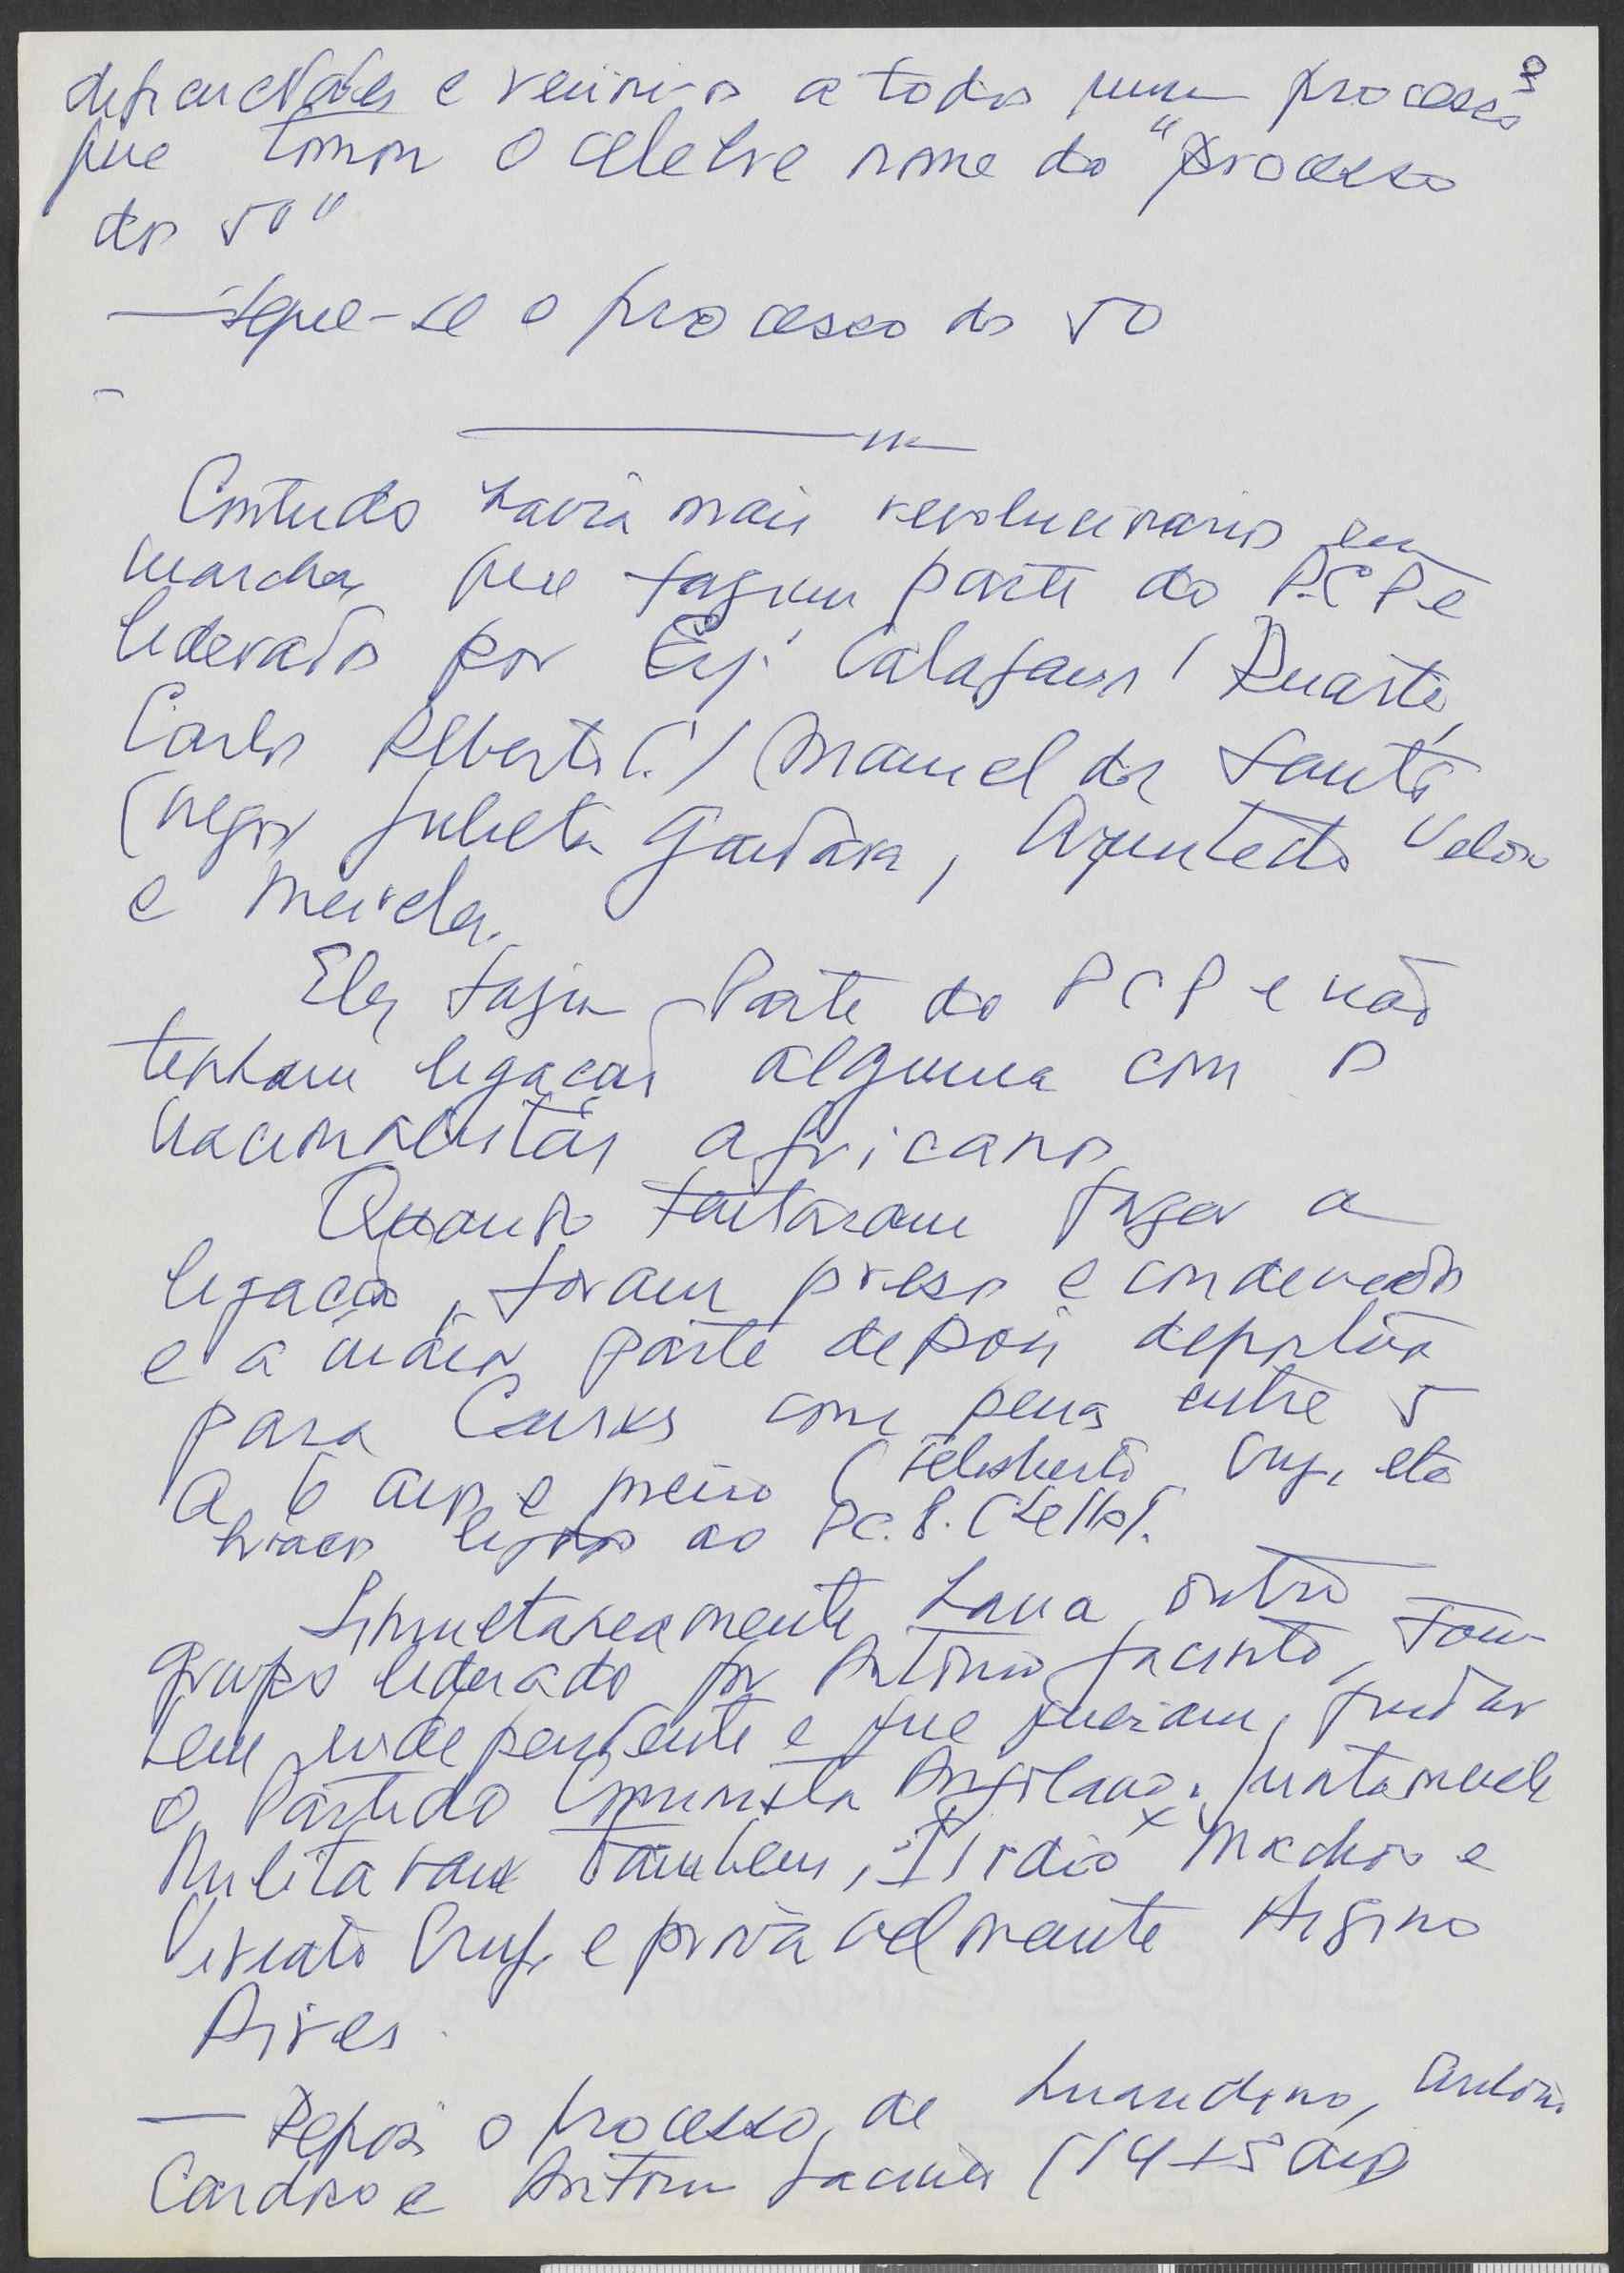 e reuni-los a todos num processo
que tomou o celebre nome do "processo
dos 50"
— Segue-se o processo dos 50
Contudo havia mais revolucionarios em
marcha, que faziam parte do P.C.P e
liderados por Eng. Calafano / Duarte,
Carlos Alberto C. / (Manuel dos Santos
(negro) Julieta Gandara, Arquitecto Veloso
e Meireles.
Eles faziam Parte do PCP e não
tinham ligações alguma com os
nacionalistas africanos
Quando tentaram fazer a
ligação, foram presos e condenados
e a maior parte depois deportada
para Caxias com penas entre 5
a 6 anos e meio ( Cruz, etc
brancos ligados ao PC.P.
Simultaneamente havia outro
grupo liderado por António Jacinto, Tam-
bem independente e que queriam fundar
o Partido Comunista Angolano. Juntamente
Militaram tambem, Ilidio Machado e
Viriato Cruz, e provavelmente Higino
Aires.
— Depois o processo de Luandino, António
Cardoso e Antonio Jacinto (14 anos